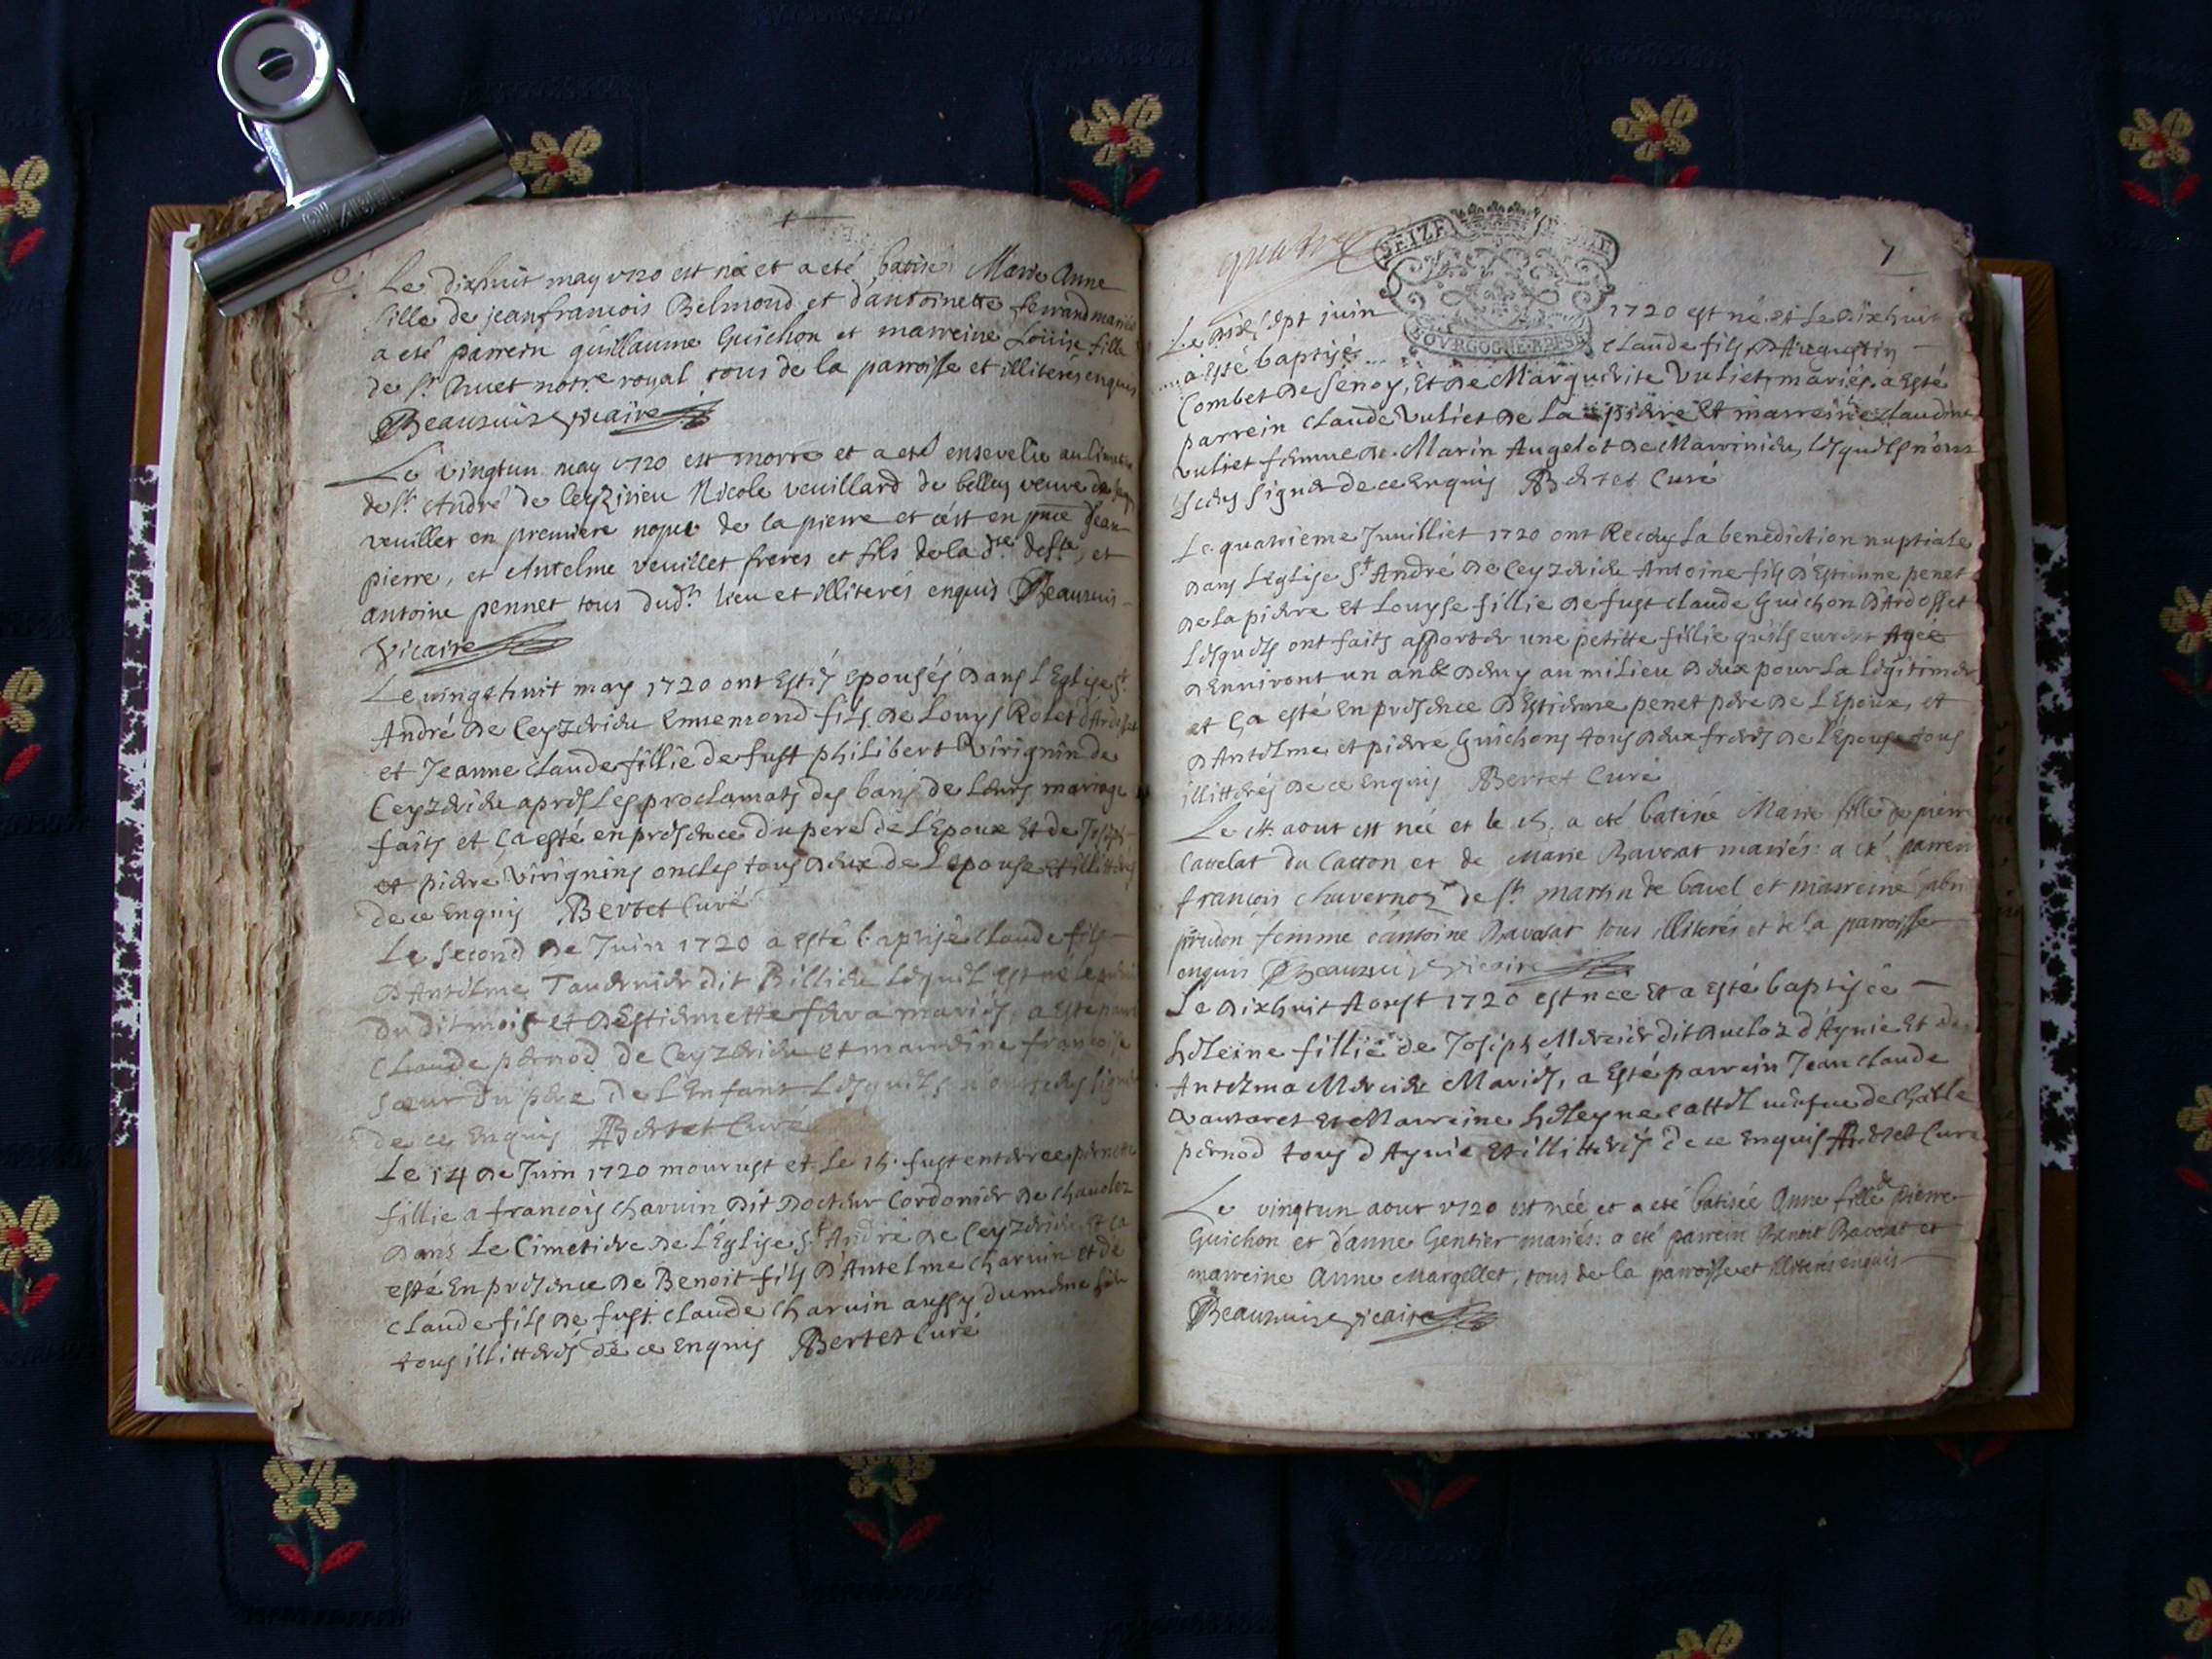 Le dixhuit may 1720 est née et a eté batisée Marie Anne
fille de jeanfrancois Belmond et d'antoinette ferrand mariés
a eté parrein guillaume Guichon et marreine Loüise fille
de Sr. notre royal tous de la parroisse et illiterés enquis
vicaire
Le vingtun may 1720 est morte et a eté ensevelie au
de St. André de Nicole veuillard de belley veuve de
veuillet en premiere nopce de la pierre et c'est en pnce Jean
pierre, et Antelme veuillet freres et fils de la dte. et
antoine pennet tous dudt. lieu et illiterés enquis
Vicaire
Le vingt huit may 1720 ont Estés epousés dans L'Eglise St.
André de Ceyzerieu Ennemond fils de Louys Rolet
et Jeanne Claude fillie de fust philibert Virignin de
Ceyzerieu apres Les proclamats des bans de Leurs mariage
faits et ça esté en presence du pere de L'Epoux Et de Joseph
et pierre Virignins oncles tous deux de L'epouse et illitterés
de ce Enquis Bertet Curé
Le Second de Juin 1720 a esté baptisé claude fils
d'Antelme dit Billieu Lequel est né le
du dit mois et d'Estiennette mariés, a esté
Claude pernod de Ceyzerieu et marreine francoise
sœur du pere de L'Enfant Lesquels n'ont sceus signer
de ce Enquis Bertet Curé
Le 14 de Juin 1720 mourust et Le 15. fust enterree pernette
fillie a francois charvin dit Docteur Cordonier de chavoley
dans Le Cimetiere de L'Eglise St André de Ceyzerieu Et ça
esté En presence de Benoit fils d'Antelme charvin et de
claude fils de fust claude charvin aussy du meme
tous illitterés de ce Enquis Bertet Curé
SEIZE
7
BOURGOGNE BRESSE
Le sept juin 1720 est né et Le dixhuit
a Esté baptisé claude fils d'Augustin
Combet de Senoy, Et de Marguerite Vuliet, mariés a Esté
parrein claude Vuliet de La Et marreine claudine
Vuliet femme de Marin Augelot de Marrinieu, Lesquels n'ont
Sceus Signer de ce Enquis Bertet Curé
Le quatrieme Juuilliet 1720 ont Receus La benediction nuptiale
dans L'Eglise St André de Ceyzerieu Antoine fils d'Estienne penet
de La pierre Et Louyse fillie de fust claude Guichon d'Ardosset
Lesquels ont faits apporter une petitte fillie qu'ils eurent Agée
d'Environt un an & demy au milieu d'eux pour La Legitimer
et ça esté En presence d'Estienne penet pere de L'Epoux, et
d'Antelme et pierre Guichons tous deux freres de L'Epouse tous
illitterés de ce Enquis Bertet Curé
Le 14. aout est née et le 15. a eté batisée Marie fille de pierre
du Catton et de Marie Bavosat mariés: a eté parrein
francois de St. martin de bavel et marreine
femme d'antoine Bavosat tous illiterés et de la parroisse
enquis vicaire
Le dixhuit Aoust 1720 est nee Et a Esté baptisée
heleine fillie de Joseph Mercier dit d'Aynie Et de
Antelma Mercier Mariés, a Esté parrein Jean claude
Et Marreine heleyne
pernod tous d'Aynie Et illitterés de ce Enquis Bertet Curé
Le vingtun aout 1720 est née et a eté batisée Anne fille de pierre
Guichon et d'anne Gentier mariés: a eté parrein Benoit Bavosat et
marreine Anne Margellet, tous de la parroisse et illiterés enquis
vicaire